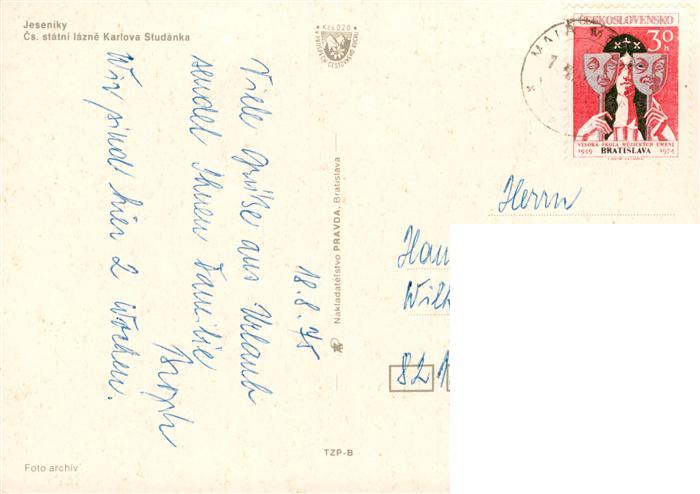 Jeseníky
Čs. státní lázně Karlova Studánka
Kčs 0,20
ČESKOSLOVENSKO
30 h
VYSOKÁ ŠKOLA MÚZICKÝCH UMENÍ
1949 BRATISLAVA 1974
Viele Grüße aus Urlaub
sendet Ihnen Familie
Wir sind hier 2 Wochen.
18.8.75
Nakladateľstvo PRAVDA, Bratislava
Herrn
Han
Wilh
82 1
TZP-B
Foto archív